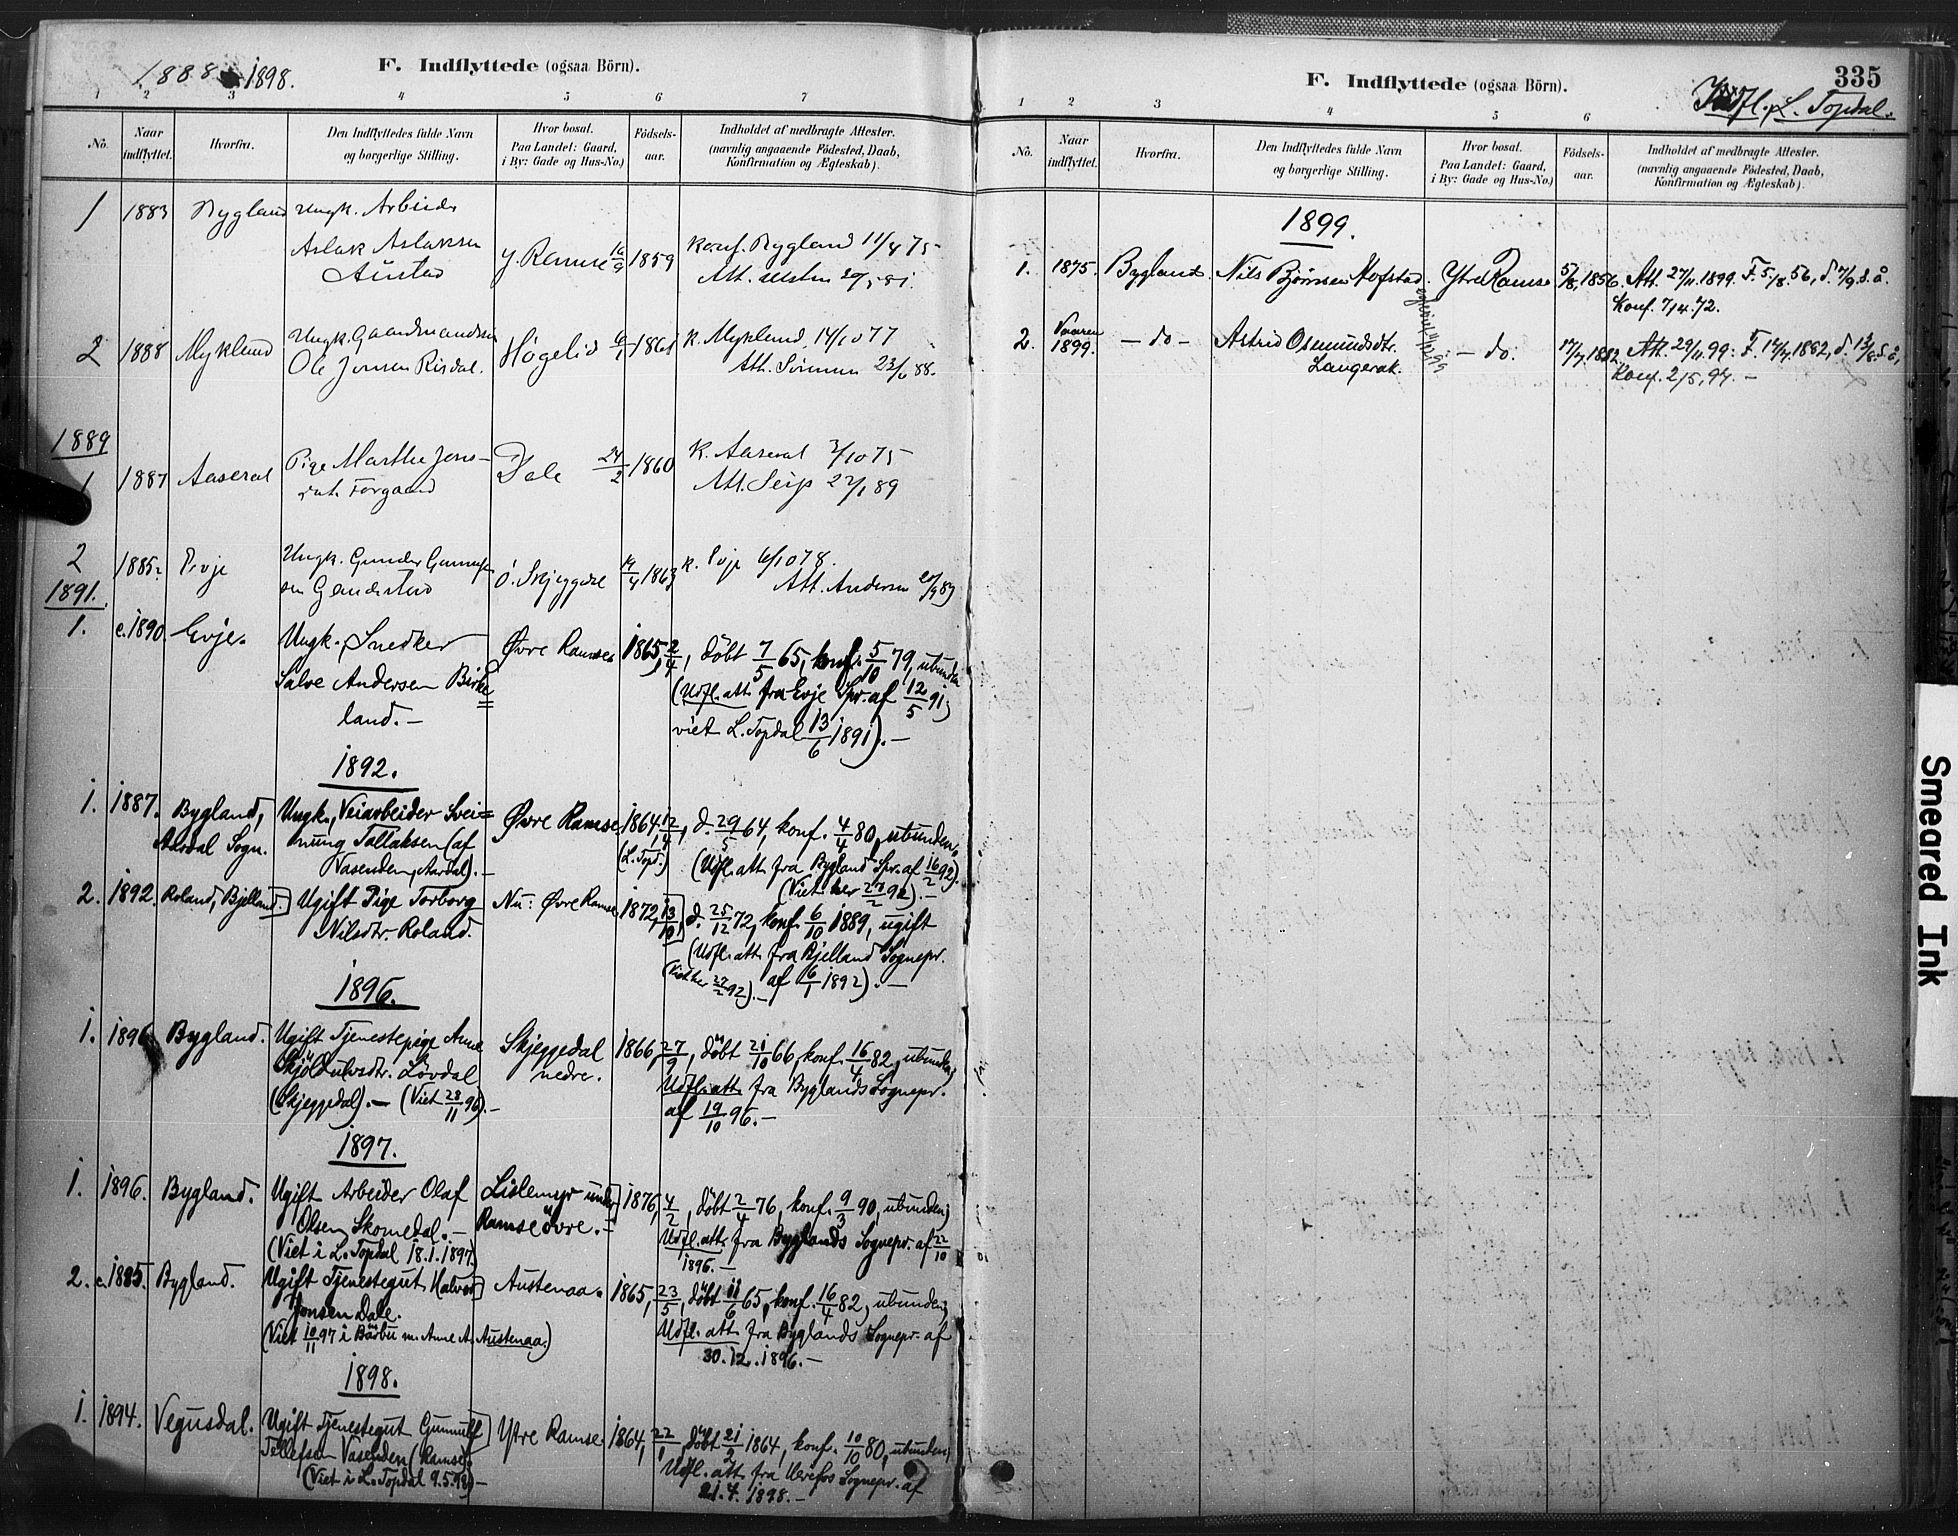 1888-1898.
F. Indflyttede (ogsaa Börn).
1 2 3 4 5 6 7
No. Naar indflyttet. Hvorfra. Den Indflyttedes fulde Navn og borgerlige Stilling. Hvor bosat. Paa Landet: Gaard, i By: Gade og Hus-No.) Födsels-aar. Indholdet af medbragte Attester. (navnlig angaaende Födested, Daab, Konfirmation og Ægteskab).
1 1883 Bygland Ungk. Arbeider
Aslak Aslaksen y. Ramse 1859 Konf. Bygland 11/4 75
Austad Att.
2 1888 Mykland Ungk. Gaardmandssøn Högelid K. Mykland 14/10 77
Ole Jonsen Risdal. Att. 23/6 88.
1889
1 1887 Aaseral Pige Marthe Jons- Dale 24/2 1860 K. Aaseral 3/10 75
dat. Att. Seip 89
2 1885 Evje Ungk. Gunder 1863 K. Evje 6/10 78.
sen Att. Andersen
1891.
1. c. 1890. Evje. Ungk., Snedker Øvre Ramse. 1865, 2/4, döbt 7/5 65, konf. 5/10 79, ubunden
Salve Andersen Birke (Udfl. att. fra Evje Spr. af 12/5 91;
land.- viet L. Topdal 13/6 1891).-
1892.
1. 1887. Bygland, Ungk., Veiarbeider Svei= Øvre Ramse. 1864, 12/4, d. 29/5 64, konf. 4/4 80, ubunden.
Aardal Sogn. nung Tallaksen (af (L. Topd.) (Udfl. att. fra Bygland Spr. af 16/2 92).
Vasenden, Aardal).- (Viet her 27/2 92).-
2. 1892. Roland, Bjelland. Ugift Pige Torborg Nu: Øvre Ramse. 1872, 13/10, d. 25/12 72, konf. 6/10 1889, ugift
Nilsdtr. Roland. (Udfl. att. fra Bjelland Sognepr.
(Viet her 27/2 92).- af 6/1 1892).-
1896.
1. 1896 Bygland. Ugift Tjenestepige Anne Skjeggedal 1866, 27/9, döbt 21/10 66, konf. 16/4 82, ubunden;
Skjöldulvsdtr. Lövdal nedre. Udfl. att. fra Byglands Sognepr.
(Skjeggedal).- (Viet 28/11 96).- af 19/10 96.-
1897.
1. 1896. Bygland. Ugift Arbeider Olaf Lislemyr under 1876, 4/2, döbt 2/4 76, konf. 9/3 90, ubunden;
Olsen Skomedal.- Ramse övre.- Udfl. att. fra Byglands Sognepr. af 22/10
(Viet i L. Topdal 18.1.1897) 1896.-
2. c. 1885. Bygland. Ugift Tjenestegut Halvor Austenaa. 1865, 23/5, döbt 11/6 65, konf. 16/4 82, ubunden;
Jonsen Dale. Udfl. att. fra Byglands Sognepr. af
(Viet 10/11 97 i Barbu m. Anne A. Austenaa.) 30.12.1896.-
1898.
1. 1894. Vegusdal. Ugift Tjenestegut Gunnulf Ytre Ramse. 1864, 22/1, döbt 21/2 1864, konf. 10/10 80, ubunden,
Tellefsen Vasenden (Ramse). Udfl. att. fra Herefos Sognepr. af
(Viet i L. Topdal 9.5.98)- 21.4.1898.-
F. Indflyttede (ogsaa Börn).
335
Indfl., L. Topdal.
1 2 3 4 5 6
No. Naar indflyttet. Hvorfra. Den Indflyttedes fulde Navn og borgerlige Stilling. Hvor bosat. Paa Landet: Gaard, i By: Gade og Hus-No.) Födsels-aar. Indholdet af medbragte Attester. (navnlig angaaende Födested, Daab, Konfirmation og Ægteskab).
1899.
1. 1875. Bygland. Nils Björnsen Hofstad. Ytre Ramse 5/8, 1856. Att. 27/11.1899. F. 5/8.56, d. 7/9 s.å.
Konf. 7/4.72.
2. Vaaren 1899. - do - Astrid Osmundsdt. - do. 17/7 1882. Att. 29/11.99. F. 17/7.1882, d. 13/8 s.å,
Langerak. Konf. 2/5,97.-
Smeared Ink